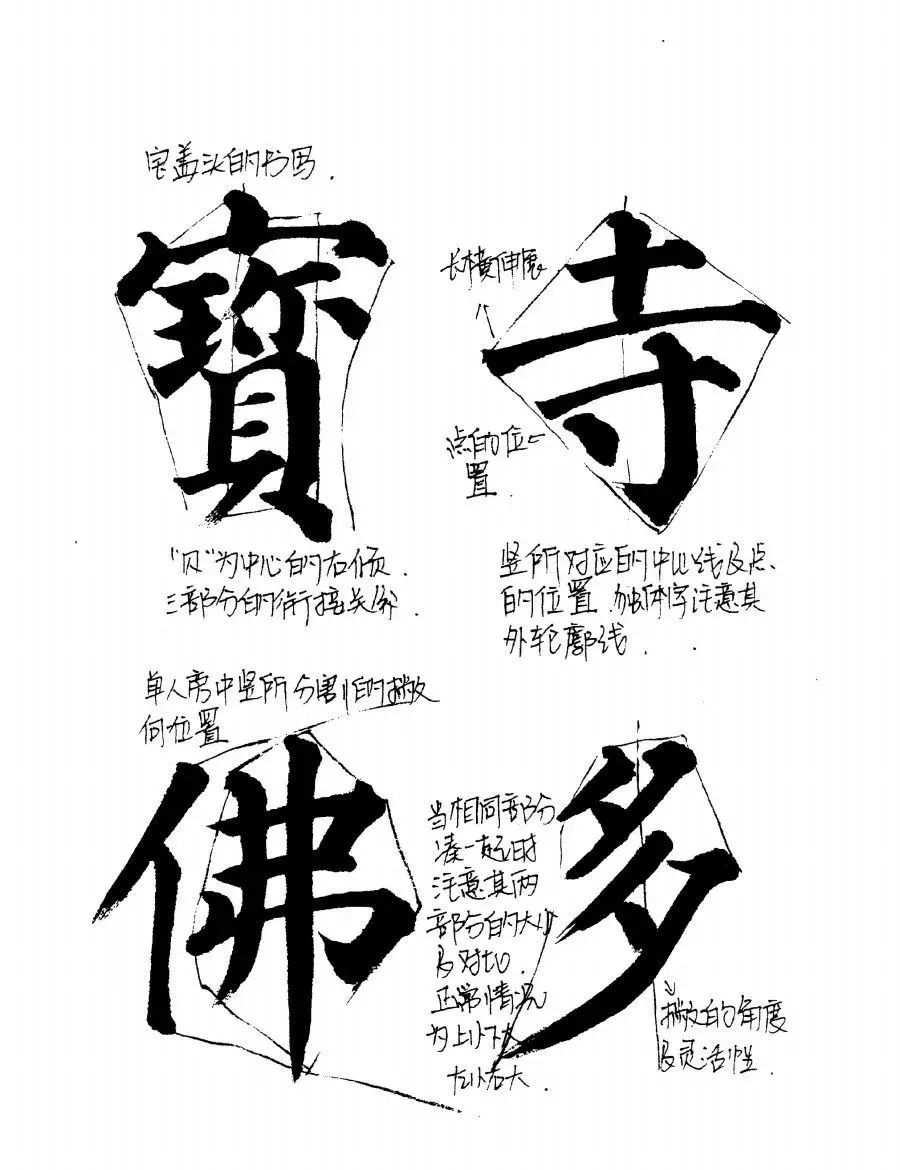 宝盖头的书写.
寳
寺
长横伸展
点的位
置
"贝"为中心的右倾.
三部分的衔接关係
竖所对应的中心线及点
的位置.独体字注意其
外轮廓线..
单人旁中竖所分割的撇
的位置
佛
多
当相同部分
凑一起时
注意其两
部分的大小
及对比.
正常情况
为上小下大
左小右大.
撇的角度
及灵活性.